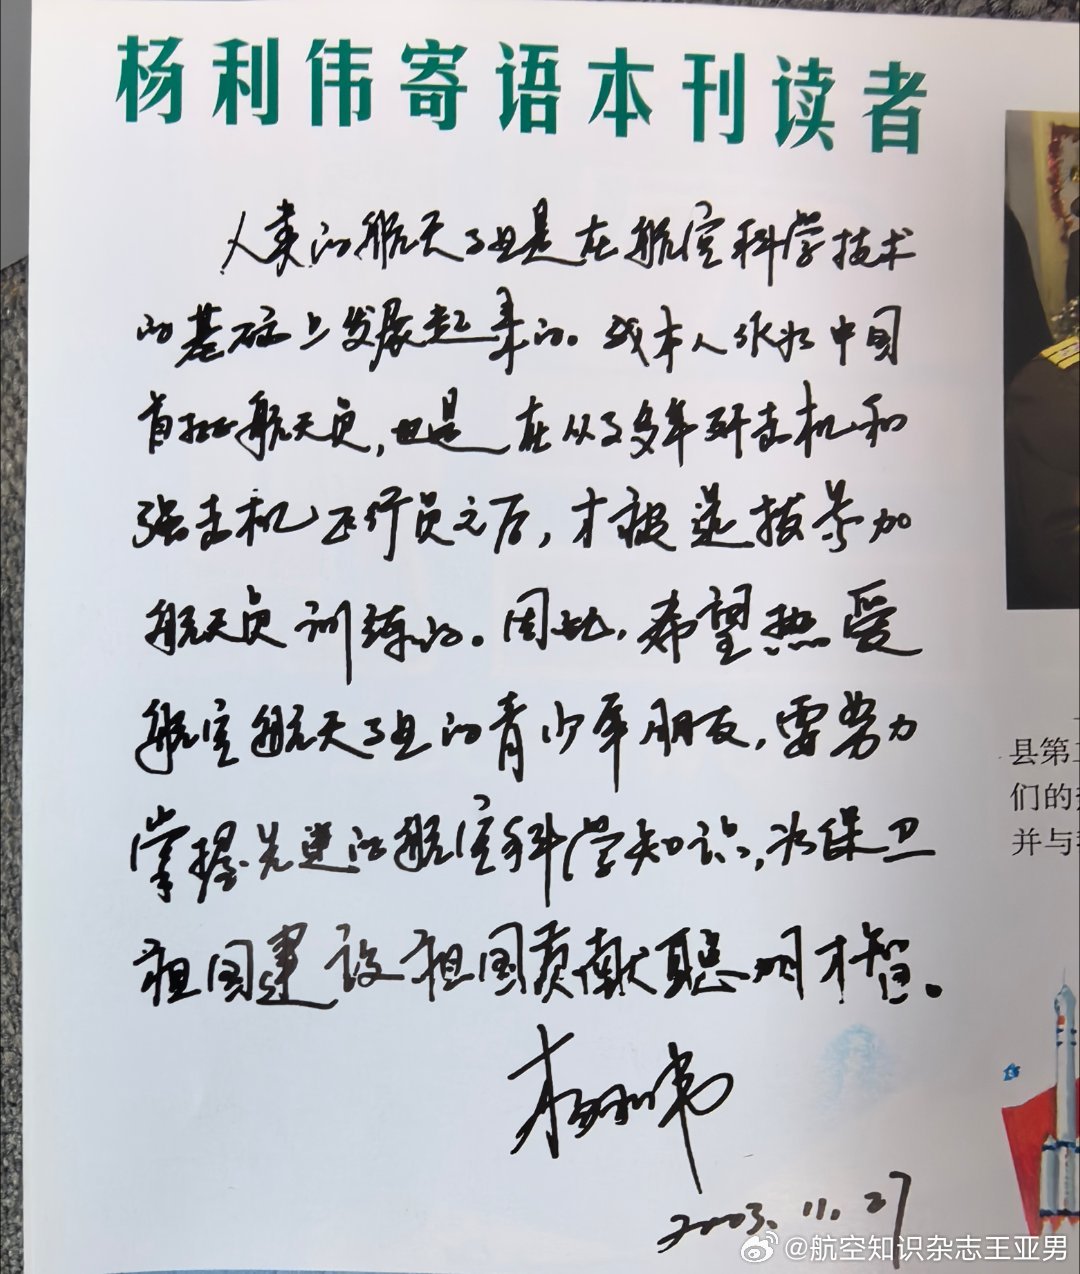 杨利伟寄语本刊读者
人类的航天事业是在航空科学技术
的基础上发展起来的。我本人作为中国
首批航天员，也是在从事多年歼击机和
强击机飞行员之后，才被选拔参加
航天员训练的。因此，希望热爱
航空航天事业的青少年朋友，要努力
掌握先进的航空科学知识，为保卫
祖国建设祖国贡献聪明才智。
杨利伟
2003.11.27
县第
们的
并与
@航空知识杂志王亚男